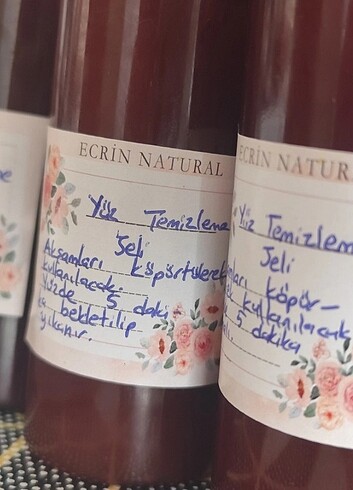 ECRİN NATURAL
Yüz Temizleme
Jeli
Akşamları köpürtülerek
kullanılacak.
Yüzde 5 daki
ka bekletilip
yıkanır.
ECRİN NATUR
Yüz Temizlem
Jeli
mları köpür-
kullanılacak
5 dakika